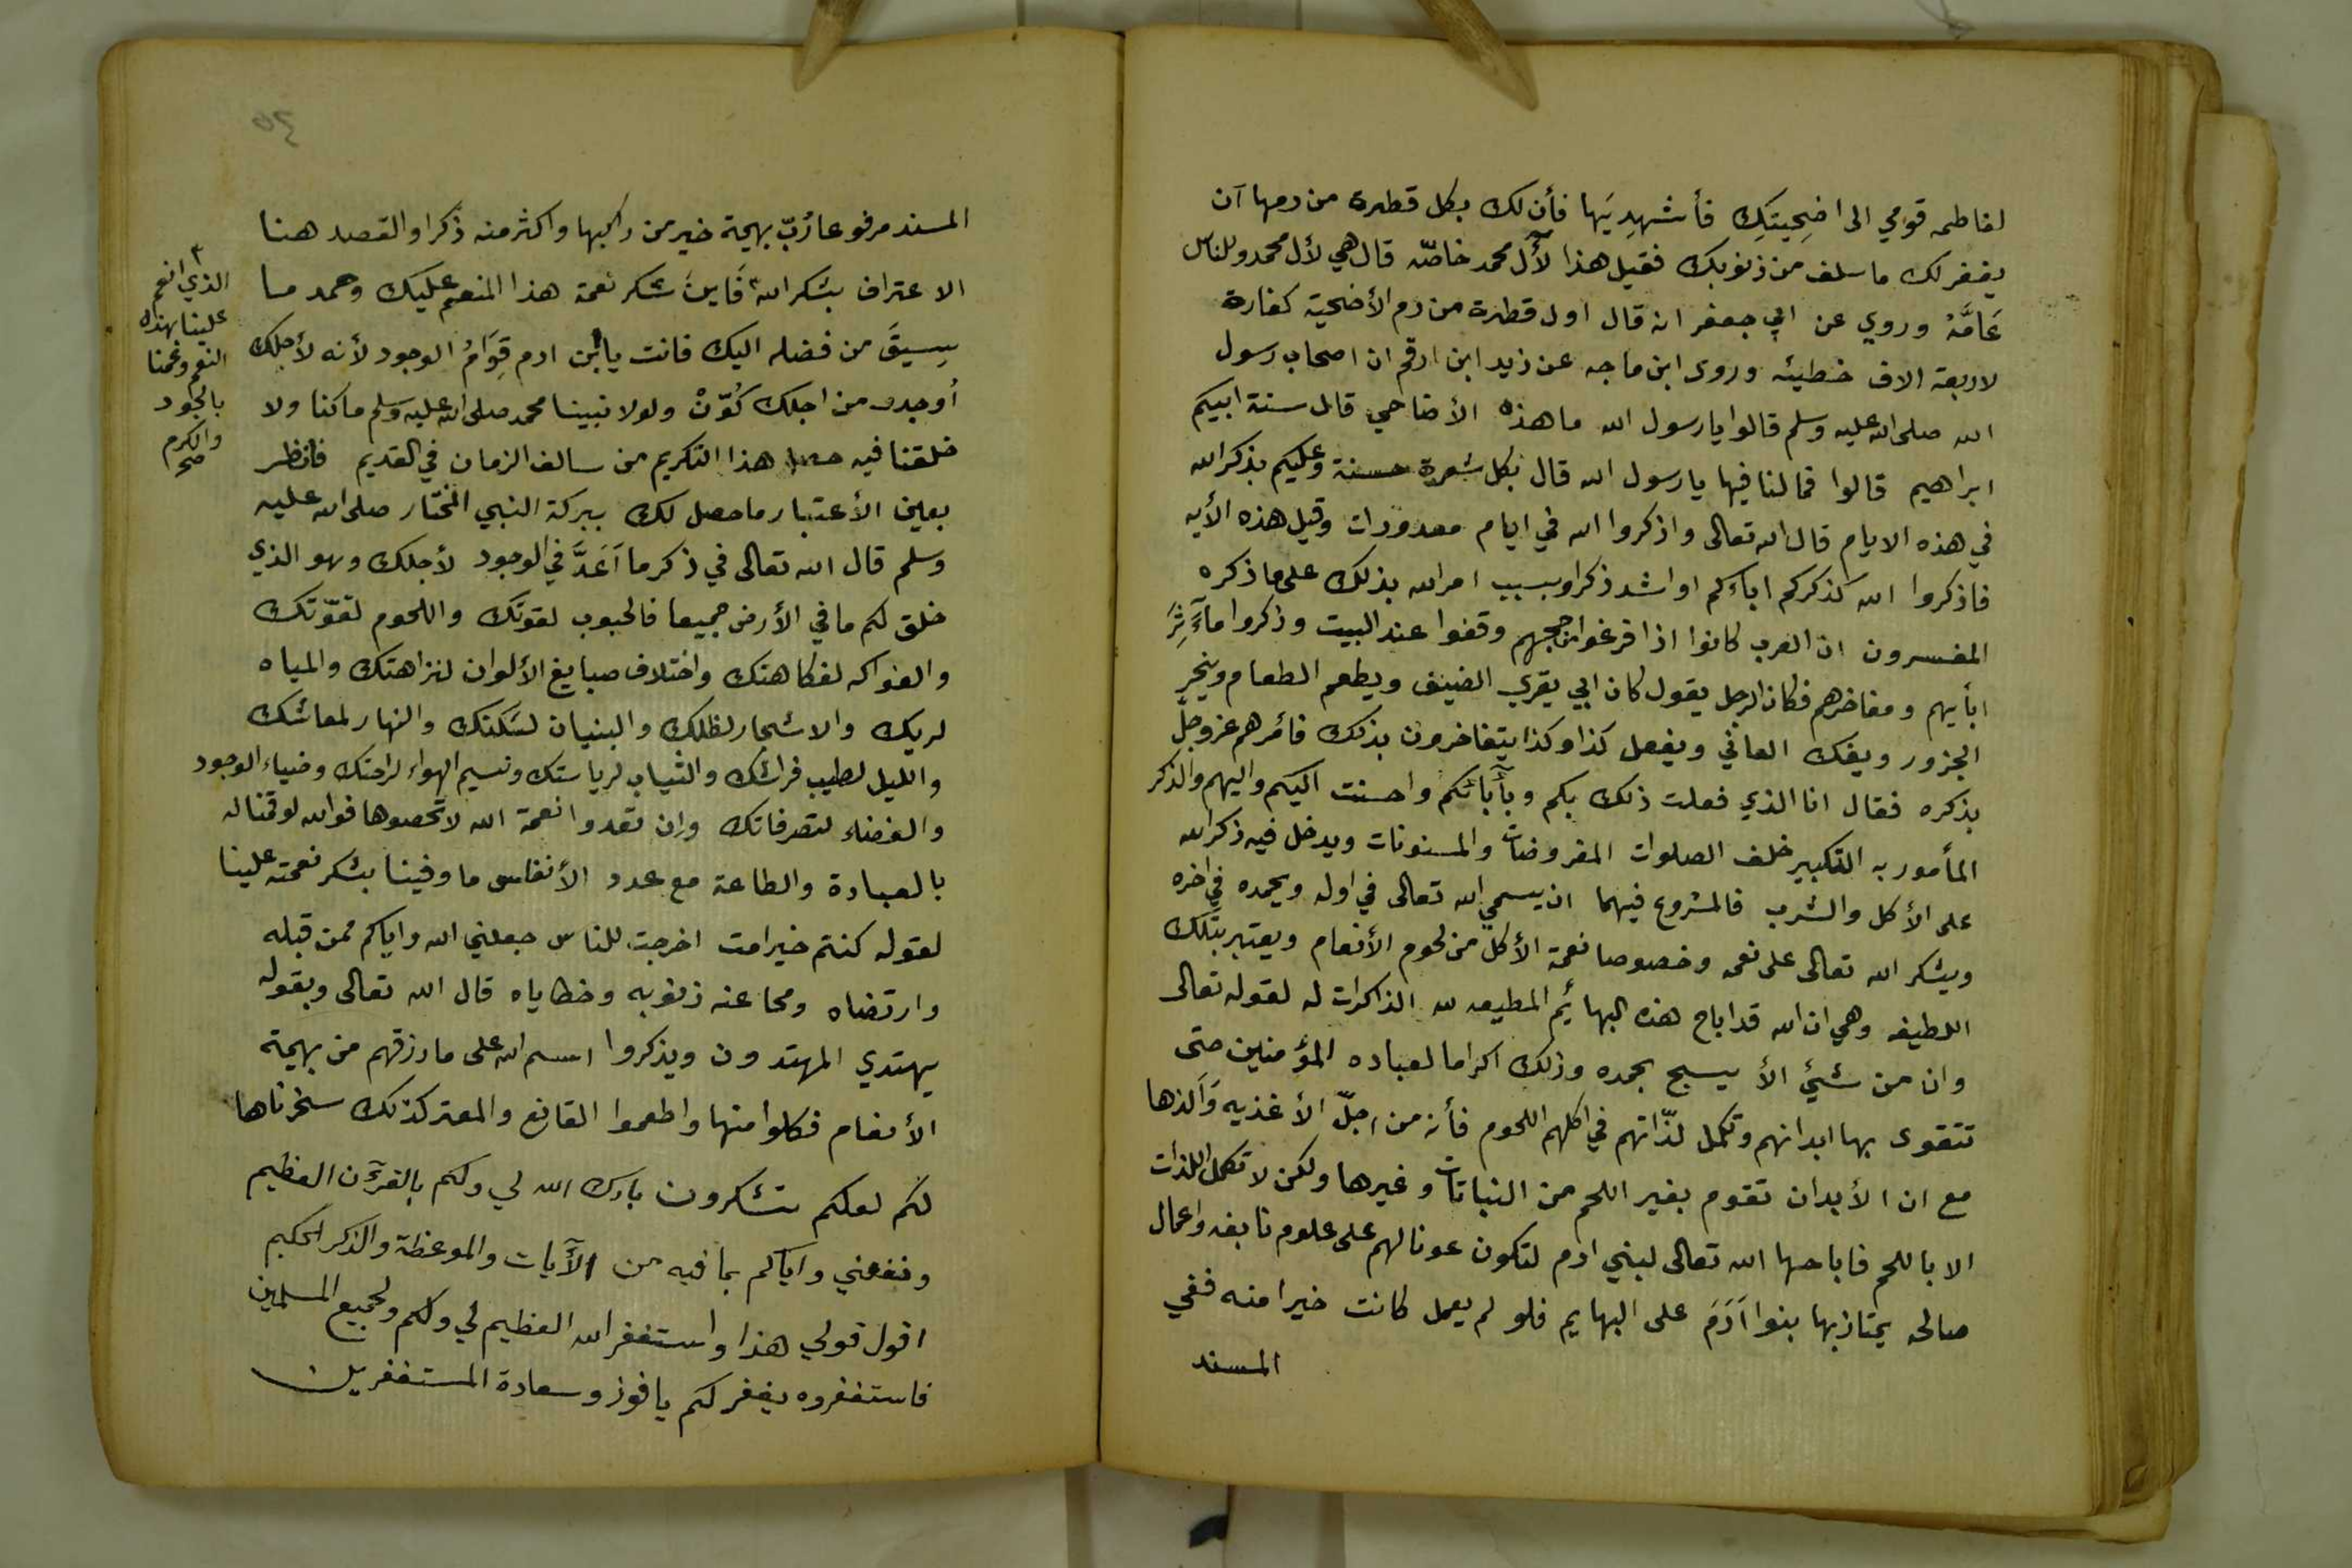 لفاطمه قومي الى اضحِيتِكِ فأشهدِيَها فأن لك بكل قطرة من دمها آن
يغفر لك ما سلف من ذنوبك فقيل هذا لآل محمد خاصّه قال هي لأل محمد وللناس
عَامَّهْ وروي عن ابي جعفر انه قال اول قطرة من دم الأضحية كفارة
لاربعة الاف خطيئه وروى ابن ماجه عن زيد ابن ارقم ان اصحاب رسول
الله صلى الله عليه وسلم قالوا يا رسول الله ما هذه الأضاحي قال سنة ابيكم
ابراهيم قالوا فما لنا فيها يا رسول الله قال بكل شعرة حسنة وعليكم بذكر الله
في هذه الايام قال الله تعالى واذكروا الله في ايام معدودات وقيل هذه الأيه
فاذكروا الله كذكركم اباءكم او اشد ذكرا وبسبب امر الله بذلك على ما ذكره
المفسرون ان العرب كانوا اذا فرغوا من حجهم وقفوا عند البيت وذكروا مآثِرَ
ابأيهم ومفاخرهم فكان الرجل يقول كان ابي يقري الضيف ويطعم الطعام وينحر
الجزور ويفك العاني ويفعل كذا وكذا يتفاخرون بذلك فأمرهم عز وجلّ
بذكره فقال انا الذي فعلت ذلك بكم وبأبائكم واحسنت اليكم واليهم والذكر
المأمور به التكبير خلف الصلوات المفروضات والمسنونات ويدخل فيه ذكر الله
على الأكل والشرب فالمشروع فيهما ان يسمي الله تعالى في اوله ويحمده في اخره
ويشكر الله تعالى على نعمه وخصوصا نعمة الأكل من لحوم الأنعام ويعتبر بتلك
اللطيفه وهي ان الله قد اباح هذه البهايُم المطيعه لله الذاكرات له لقوله تعالى
وان من شيئ الأ يسبح بحمده وذلك اكراما لعباده المؤمنين حتى
تتقوى بها ابدانهم وتكمل لذّاتهم في اكلهم اللحوم فأنه من اجلّ الأغذيه وَالذها
مع ان الأبدان تقوم بغير اللحم من النباتات وغيرها ولكن لا تكمل اللذات
الا باللحم فاباحها الله تعالى لبني ادم لتكون عونا لهم على علوم نافعه واعمال
صالحه يمتاز بها بنوا آدَمَ على البهايم فلو لم يعمل كانت خيرا منه ففي
المسند
المسند مرفوعا رُبّ بهيمة خير من راكبها واكثر منه ذكرا والقصد هنا
الاعتراف بشكر الله فَاينَ شكر نعمة هذا المنعم عليك وحمد ما
سِيقَ من فضله اليك فانت يا ابن ادم قِوَامُ الوجود لأنه لأجلك
أوجد ومن اجلك كُوّنْ ولولا نبينا محمد صلى الله عليه وسلم ما كنا ولا
خلقنا فيه حصل هذا التكريم من سالف الزمان في القديم فانظر
بعين الأعتبار ما حصل لك ببركة النبي المختار صلى الله عليه
وسلم قال الله تعالى في ذكر ما آعَدَّ في الوجود لأجلك وهو الذي
خلق لكم ما في الأرض جميعا فالحبوب لقوتك واللحوم لقوّتك
والفواكه لفكاهتك واختلاف صبايغ الألوان لنزاهتك والمياه
لريك والاشجار لظلك والبنيان لسَكنك والنهار لمعاشك
والليل لطيب فراشك والثياب لرياستك ونسيم الهواء لراحتك وضياء الوجود
والفضاء لتصرفاتك وان تعدوا نعمة الله لا تحصوها فوالله لو قمنا له
بالعبادة والطاعة مع عدد الأنفاس ما وفينا بشكر نعمته علينا
لقوله كنتم خير امت اخرجت للناس جعلني الله واياكم ممن قبله
وارتضاه ومحا عنه ذنوبه وخطاياه قال الله تعالى وبقوله
يهتدي المهتدون ويذكروا اسم الله على ما رزقهم من بهيمة
الأنعام فكلوا منها واطعموا القانع والمعتر كذلك سخرناها
لكم لعلكم تشكرون بارك الله لي ولكم بالقرآن العظيم
ونفعني واياكم بما فيه من الآيات والموعظة والذكر الحكيم
اقول قولي هذا واستغفر الله العظيم لي ولكم ولجميع المسلمين
فاستغفروه يغفر لكم يا فوز وسعادة المستغفرين
الذي انعم
علينا بهذه
النعم وعمنا
بالجود
والكرم
صح